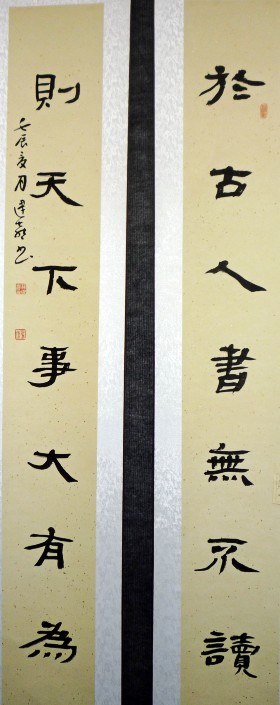 於古人書無不讀
則天下事大有為
壬辰夏月建龍书